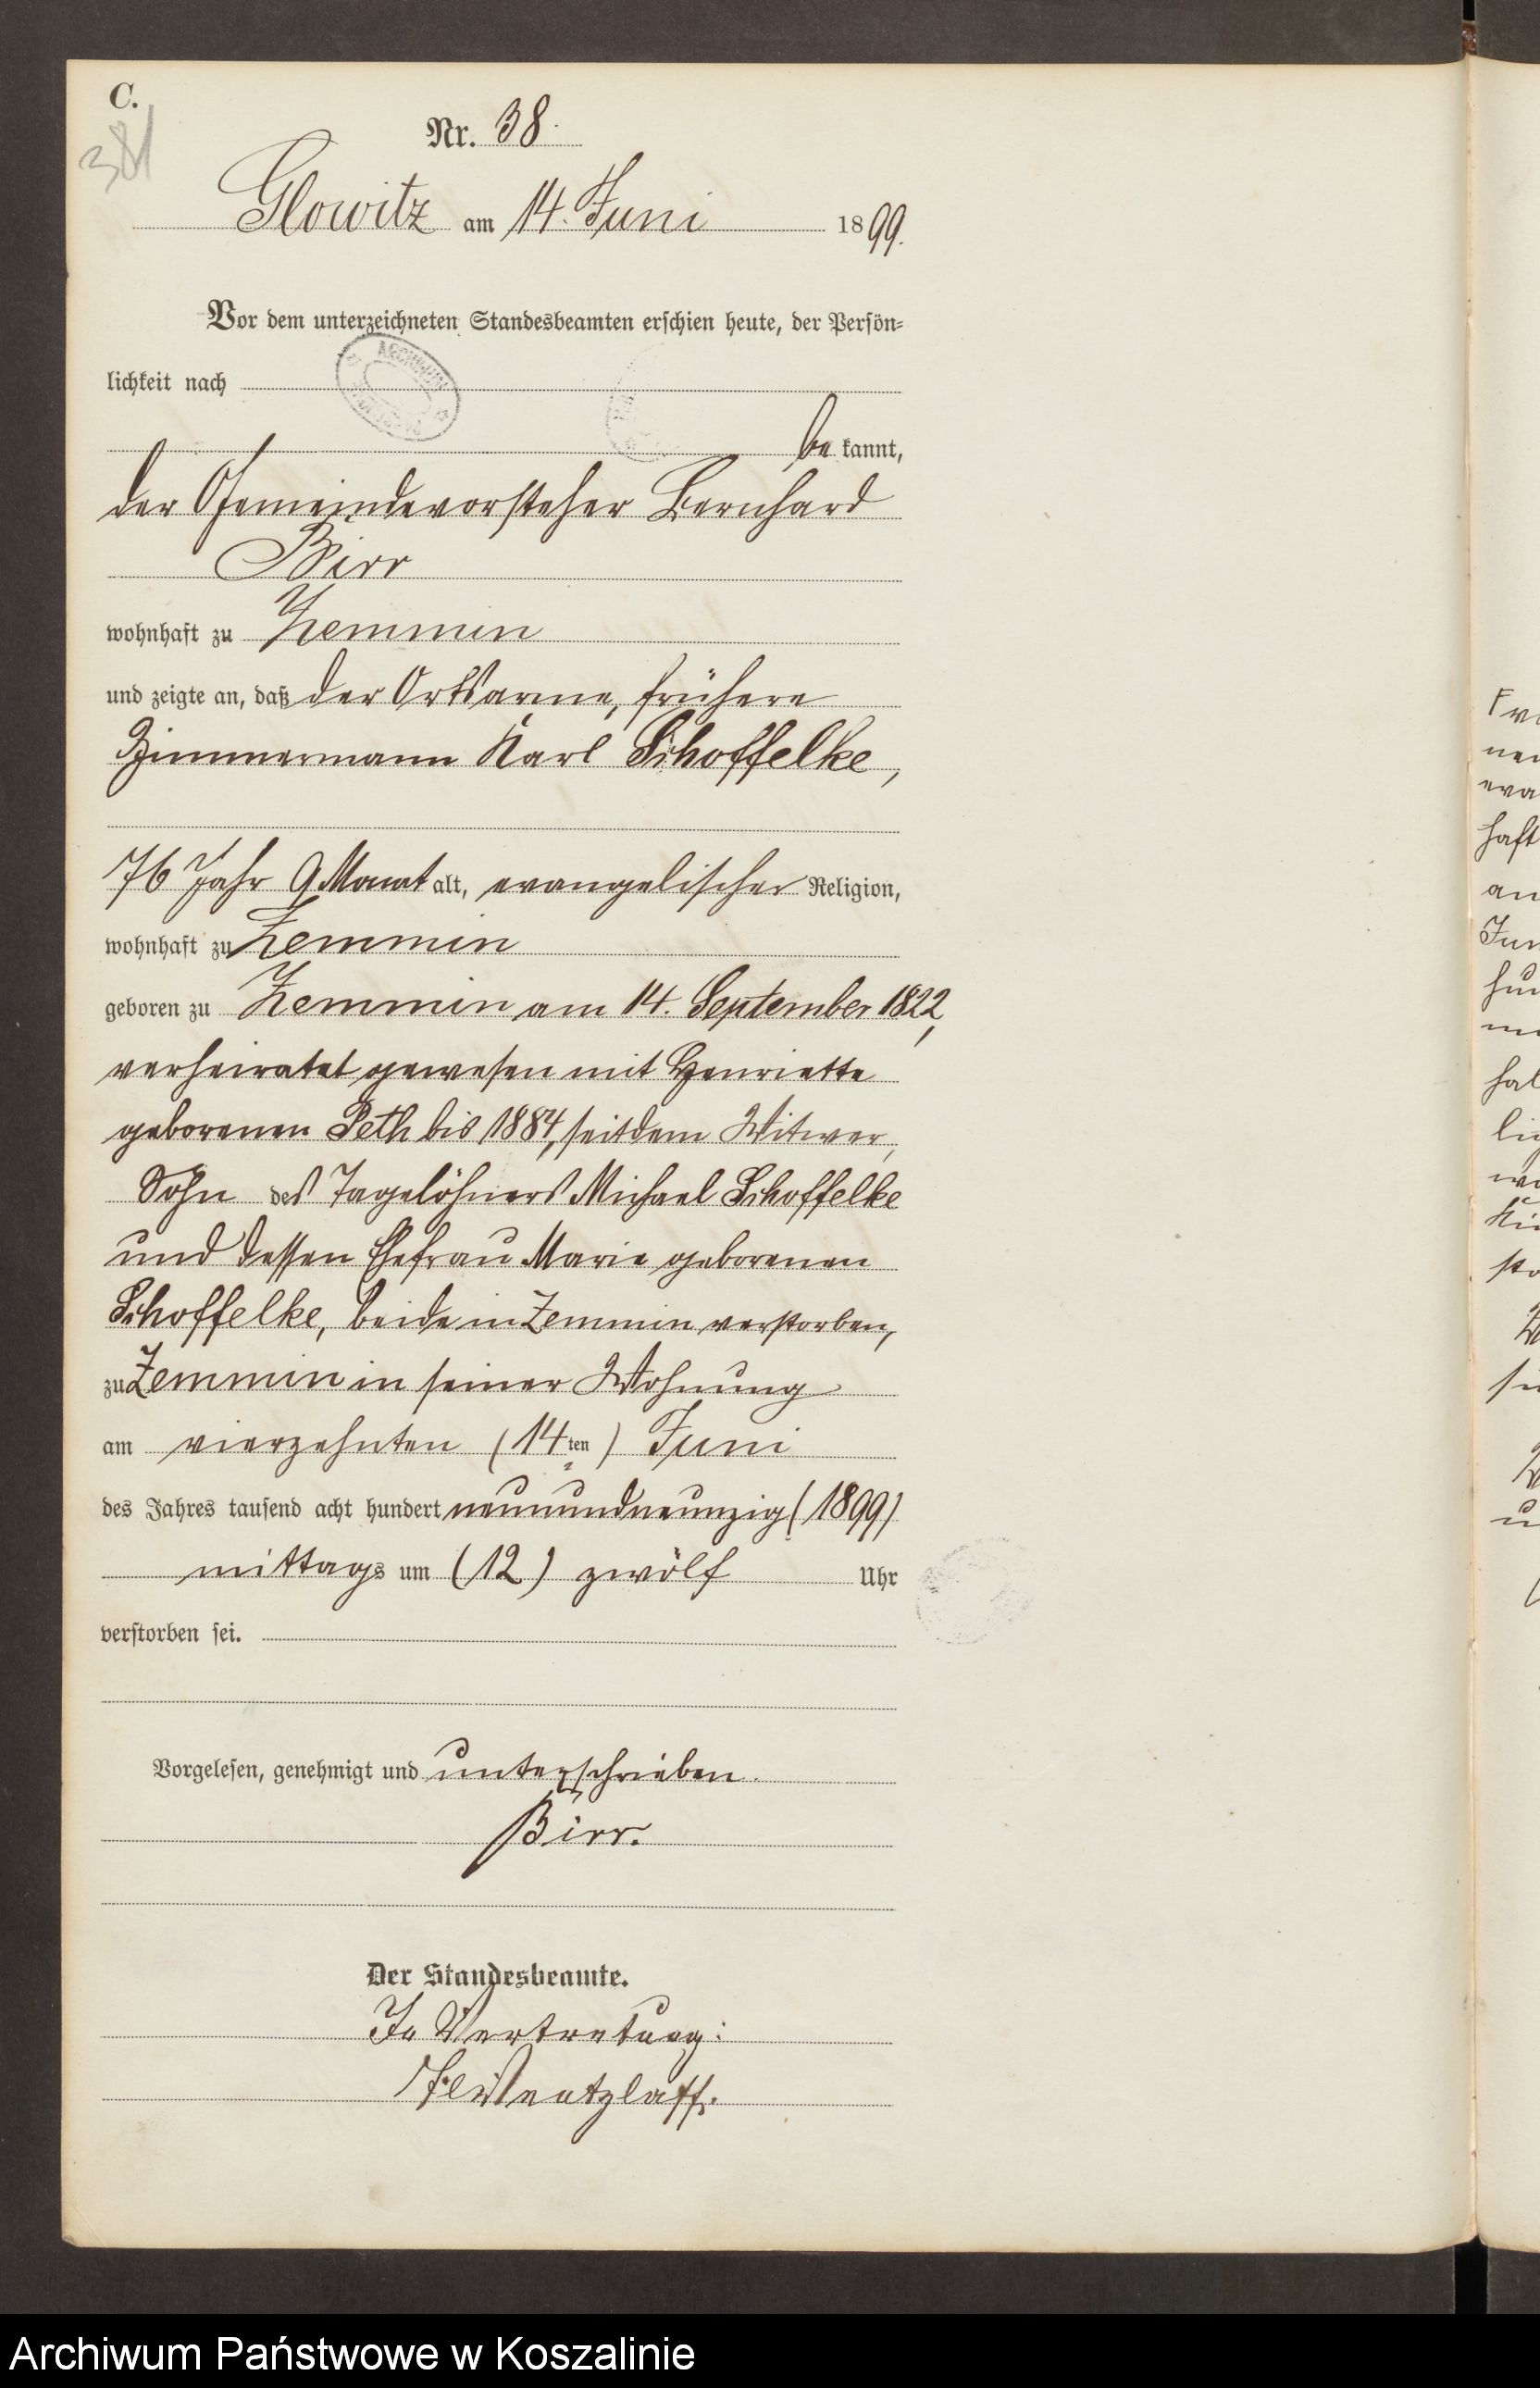 C.
381
Nr. 38.
Glowitz am 14. Juni 1899.
Vor dem unterzeichneten Standesbeamten erschien heute, der Persön-
lichkeit nach
ARCHIWUM
be kannt,
der Gemeindevorsteher Bernhard
Birr
wohnhaft zu Zemmin
und zeigte an, daß der Ortsarme, frühere
Zimmermann Karl Schoffelke,
76 Jahr 9 Monat alt, evangelischer Religion,
wohnhaft zu Zemmin
geboren zu Zemmin am 14. September 1822,
verheiratet gewesen mit Henriette
geborenen Peth bis 1884, seitdem Witwer,
Sohn des Tagelöhners Michael Schoffelke
und dessen Ehefrau Marie geborenen
Schoffelke, beide in Zemmin verstorben,
zu Zemmin in seiner Wohnung
am vierzehnten (14ten) Juni
des Jahres tausend acht hundert neunundneunzig (1899)
mittags um (12) zwölf Uhr
verstorben sei.
Vorgelesen, genehmigt und unterschrieben.
Birr.
Der Standesbeamte.
In Vertretung:
Archiwum Państwowe w Koszalinie